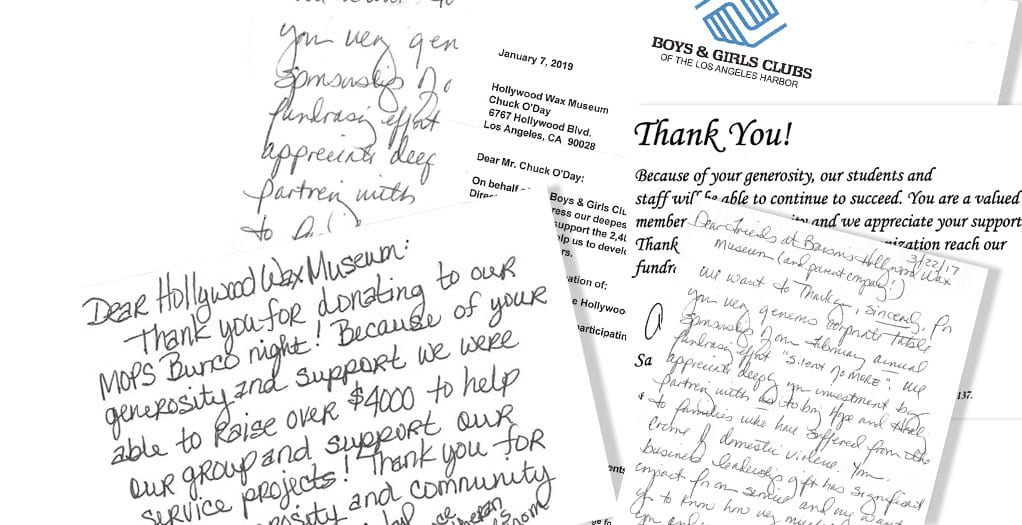 you very gen
sponsorship
fundrasing effort
appreciate deep
partnering with
to
January 7, 2019
Hollywood Wax Museum
Chuck O'Day
6767 Hollywood Blvd.
Los Angeles, CA 90028
Dear Mr. Chuck O'Day:
On behalf
Boys & Girls Clu
ress our deepes
support the 2,40
lp us to devel
rs.
ation of:
e Hollywoo
articipatin
BOYS & GIRLS CLUBS
OF THE LOS ANGELES HARBOR
Thank You!
Because of your generosity, our students and
staff will be able to continue to succeed. You are a valued
member and we appreciate your support
Thank nization reach our
fundr
Sa
137.
Dear Hollywood Wax Museum:
Thank you for donating to our
MOPS Burco night! Because of your
generosity and support we were
able to Raise over $4000 to help
our group and support our
service projects! Thank you for
osity and community
3/22/17
Dear Friends at Hollywood Wax
Museum (and parent company!)
We want to thank you, sincerely, for
your very generous corporate table
sponsorship of our February annual
fundrasing effort "Silent No MORE". We
appreciate deeply your investment by
partnering with us to bring Hope and Heal
to families who have suffered from the
crime of domestic violence. Your
business leadership gift has significant
impact for our service and we want
you to know how very much
you and